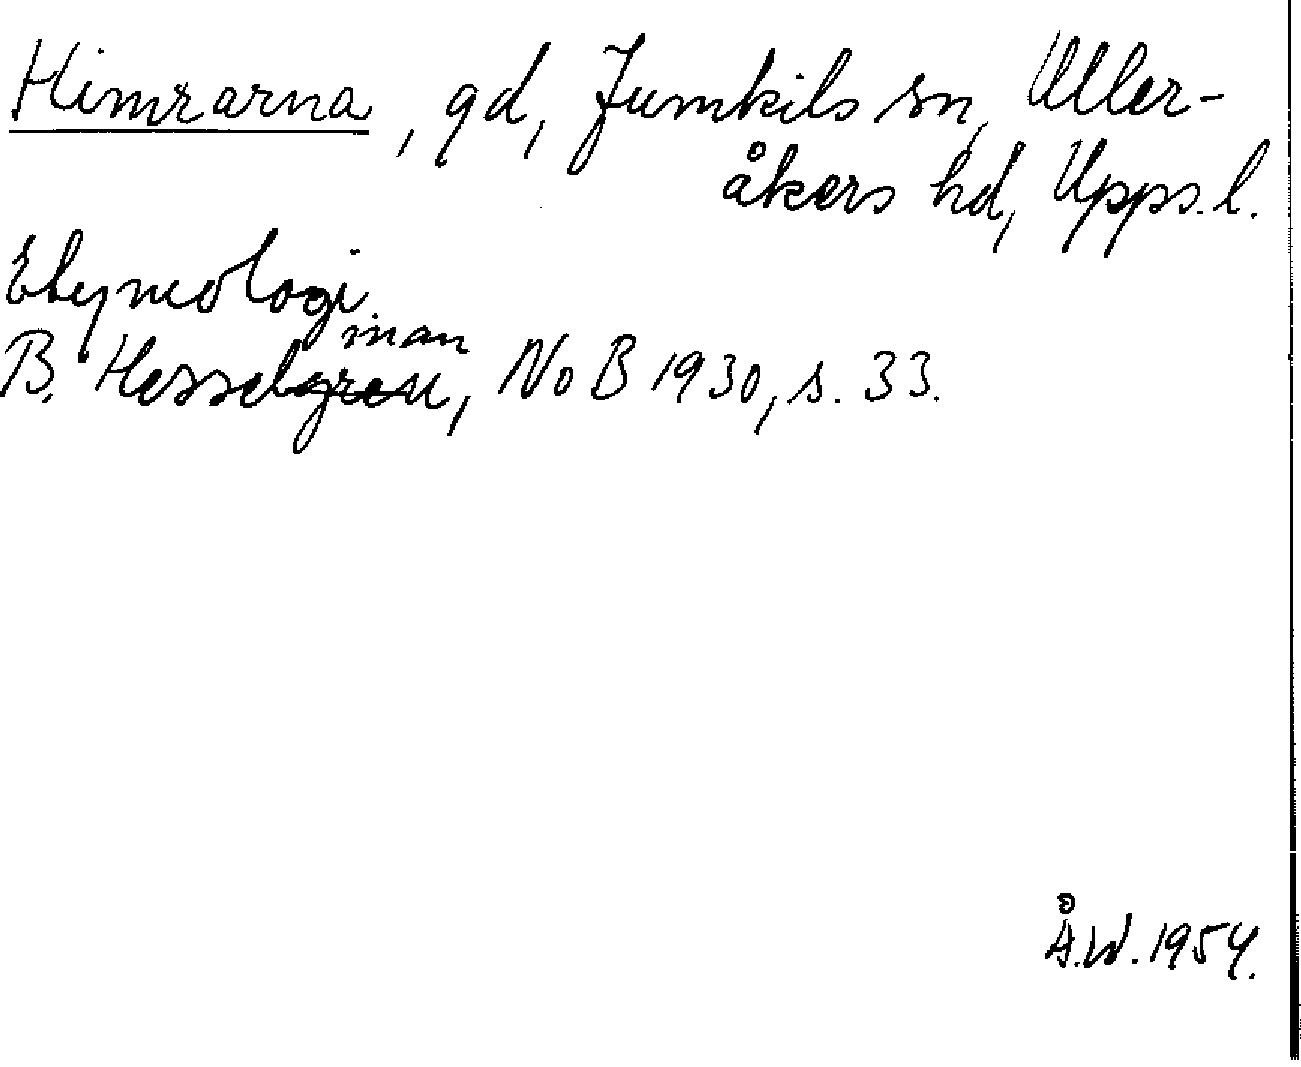 Himrarna, gd, Jumkils sn, Uller-
åkers hd, Upps. l.
Etymologi
B. Hesselman, NoB 1930, s. 33.
Å.W. 1954.